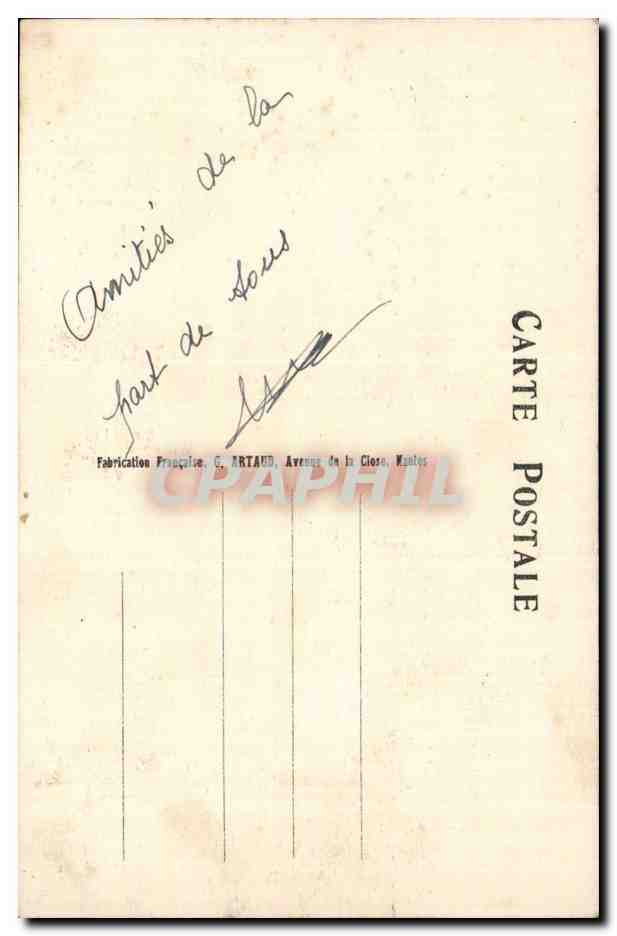 Amitiés de la
part de tous
Fabrication Française, G. ARTAUD, Avenue de la Close, Nantes
CPAPHIL
CARTE POSTALE